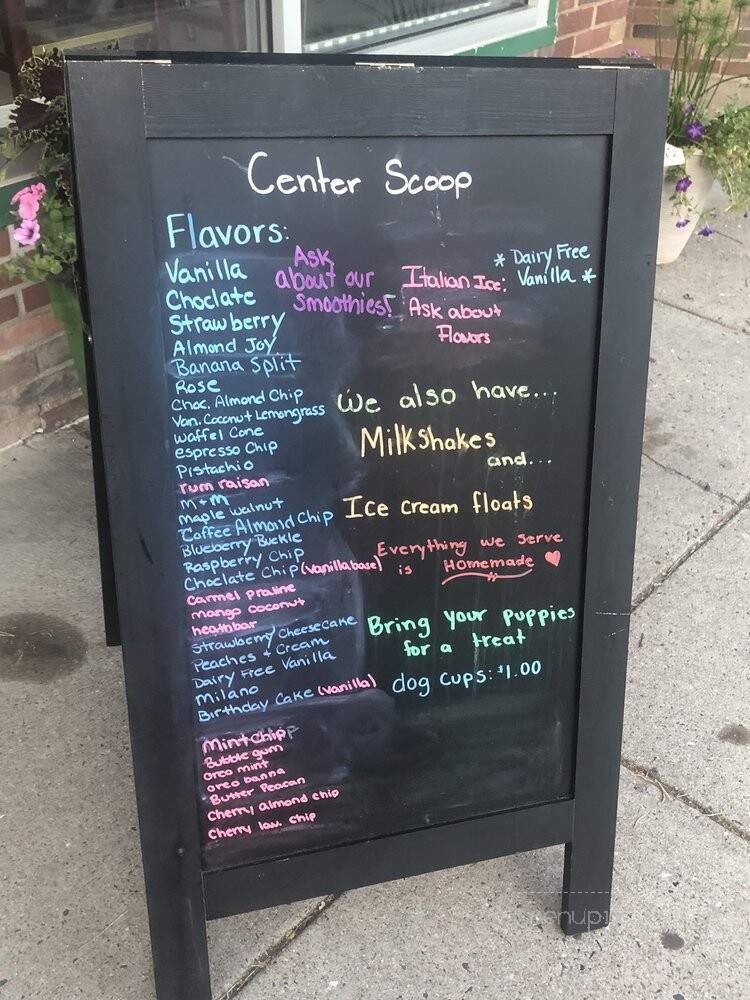 Center Scoop
Flavors:
Vanilla
Choclate
Strawberry
Almond Joy
Banana Split
Rose
Choc. Almond Chip
Van. Coconut Lemongrass
Waffel Cone
espresso Chip
Pistachio
rum raisan
m+m
maple walnut
Coffee Almond Chip
Blueberry Buckle
Raspberry Chip
Choclate Chip (vanilla base)
carmel praline
mango coconut
heathbar
Strawberry Cheesecake
Peaches + Cream
Dairy Free Vanilla
Milano
Birthday Cake (vanilla)
Mint chip
Bubble gum
oreo mint
oreo banna
Butter Peacan
Cherry almond chip
Cherry chip
Ask
about our
smoothies!
Italian Ice:
Ask about
Flavors
* Dairy Free
Vanilla *
We also have...
Milkshakes
and...
Ice cream floats
Everything we serve
is Homemade ♥
Bring your puppies
for a treat
dog cups: $1.00